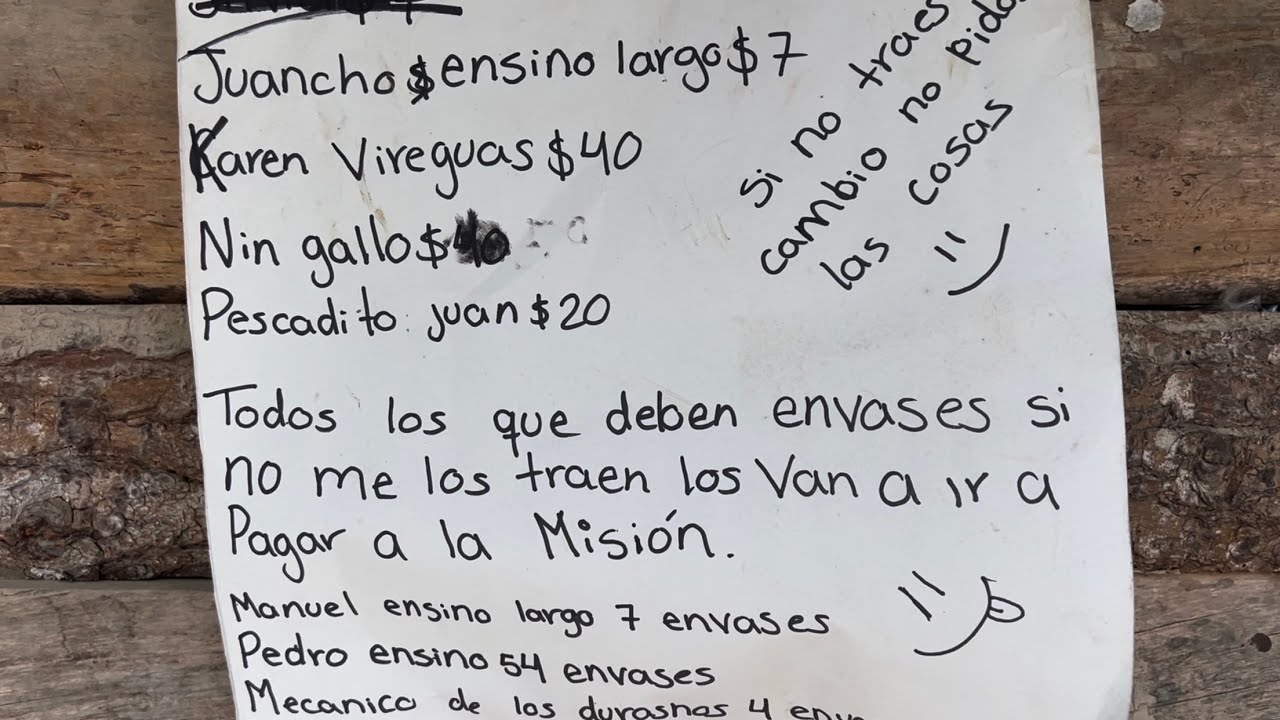 Juancho $ ensino largo $ 7
Karen Vireguas $ 40
Nin gallo $
Pescadito juan $ 20
si no traes
cambio no pida
las cosas
Todos los que deben envases si
no me los traen los Van a ir a
Pagar a la Misión.
Manuel ensino largo 7 envases
Pedro ensino 54 envases
Mecanico de los durasnas 4